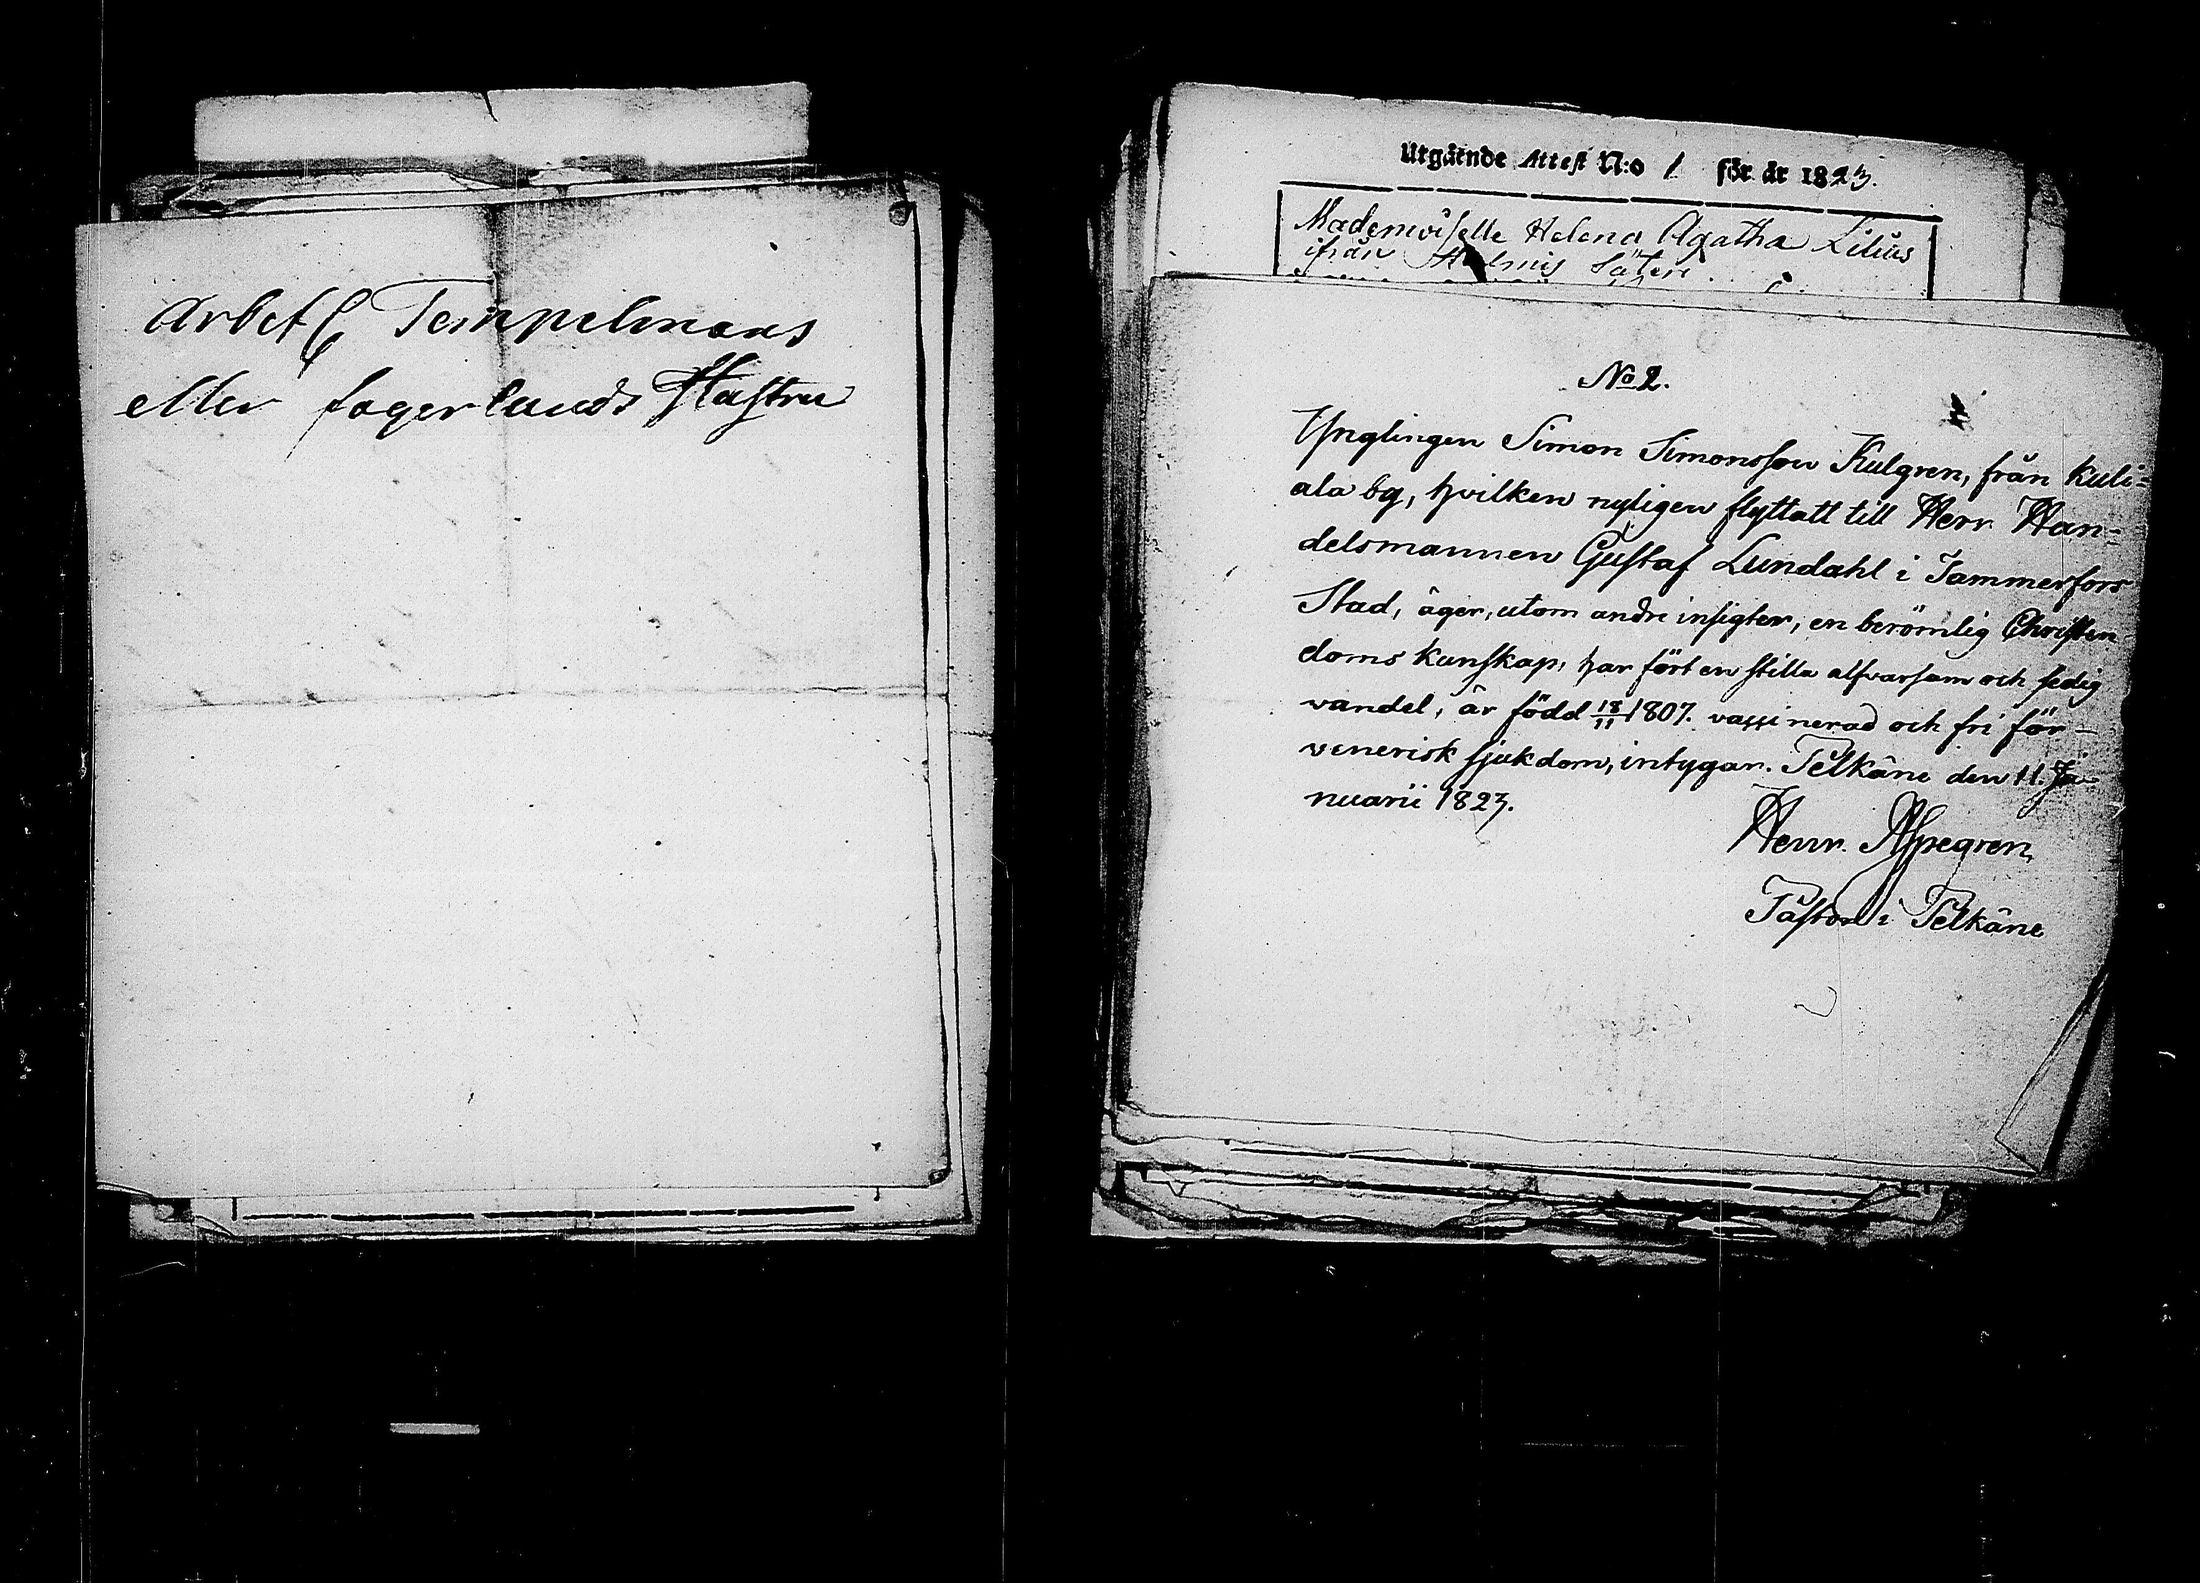 Arbet C Tempelmans
eller fagerlunds Hustru
Utgående Attest N:o 1 för år 1823.
Mademoiselle Helena Agatha Lilius
ifrån Säteri
No 2.
Ynglingen Simon Simonsson Kulgren, från Kuli=
ala by, hvilken nyligen flyttatt till Herr Han=
delsmannen Gustaf Lundahl i Tammerfors
Stad, äger, utom andre insigter, en berömlig Christen=
doms kunskap, har fört en stilla alfvarsam och sedig
vandel, är född 18/11 1807. vassinerad och fri för
venerisk sjukdom, intygar. Pelkäne den 11. Ja=
nuarii 1823.
Henr. Aspegren,
Pastor i Pelkäne